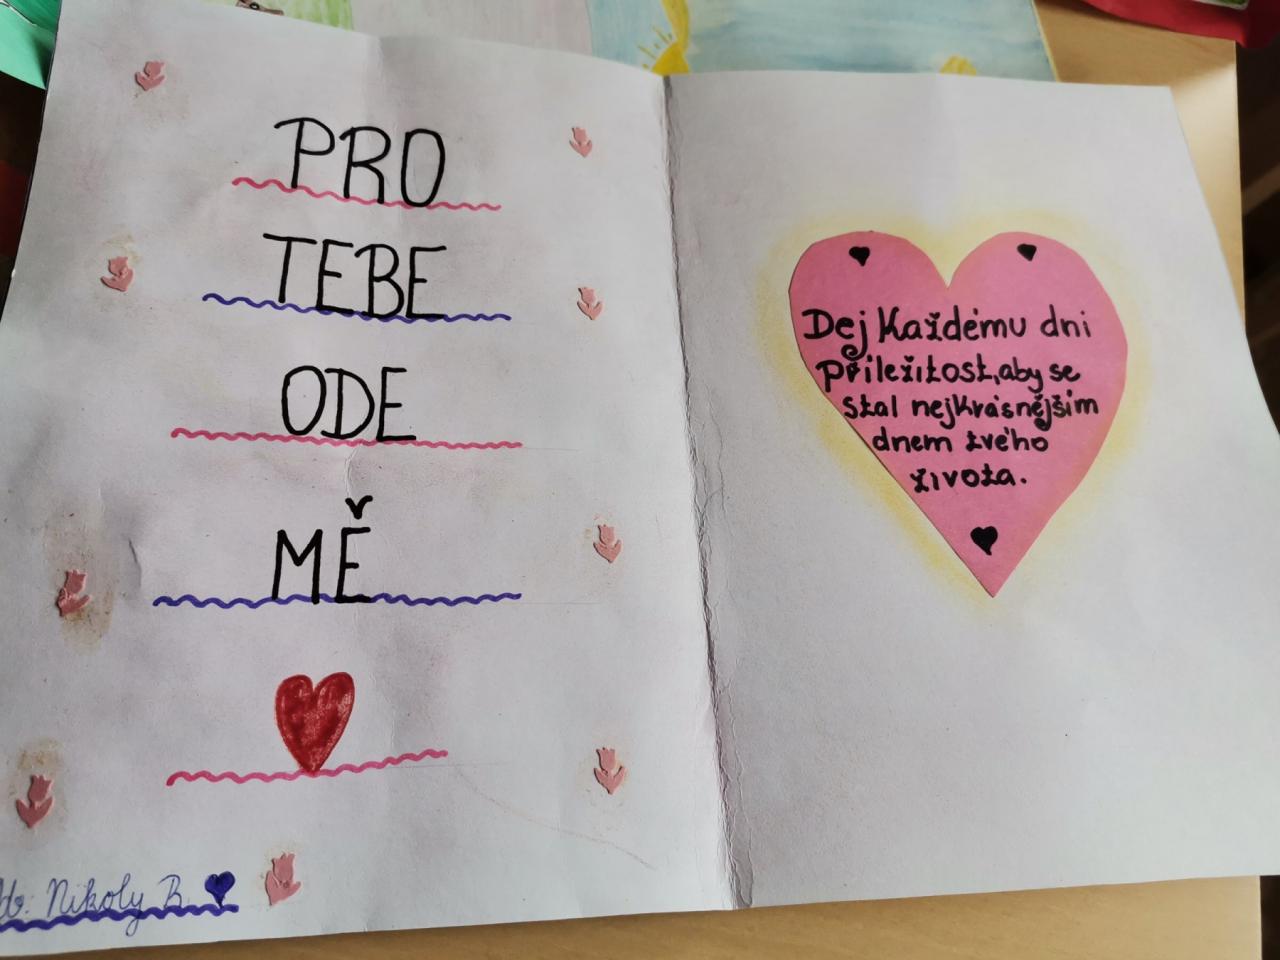 PRO
TEBE
ODE
MĚ
Nikoly B.
Dej Každému dni
příležitost,aby se
stal nejkrásnějším
dnem tvého
života.